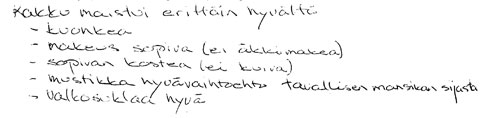 Kakku maistui erittäin hyvältä
- kuohkea
- makeus sopiva (ei äkkimakea)
- sopivan kostea (ei kuiva)
- mustikka hyvä vaihtoehto tavallisen mansikan sijasta
- valkosuklaa hyvä